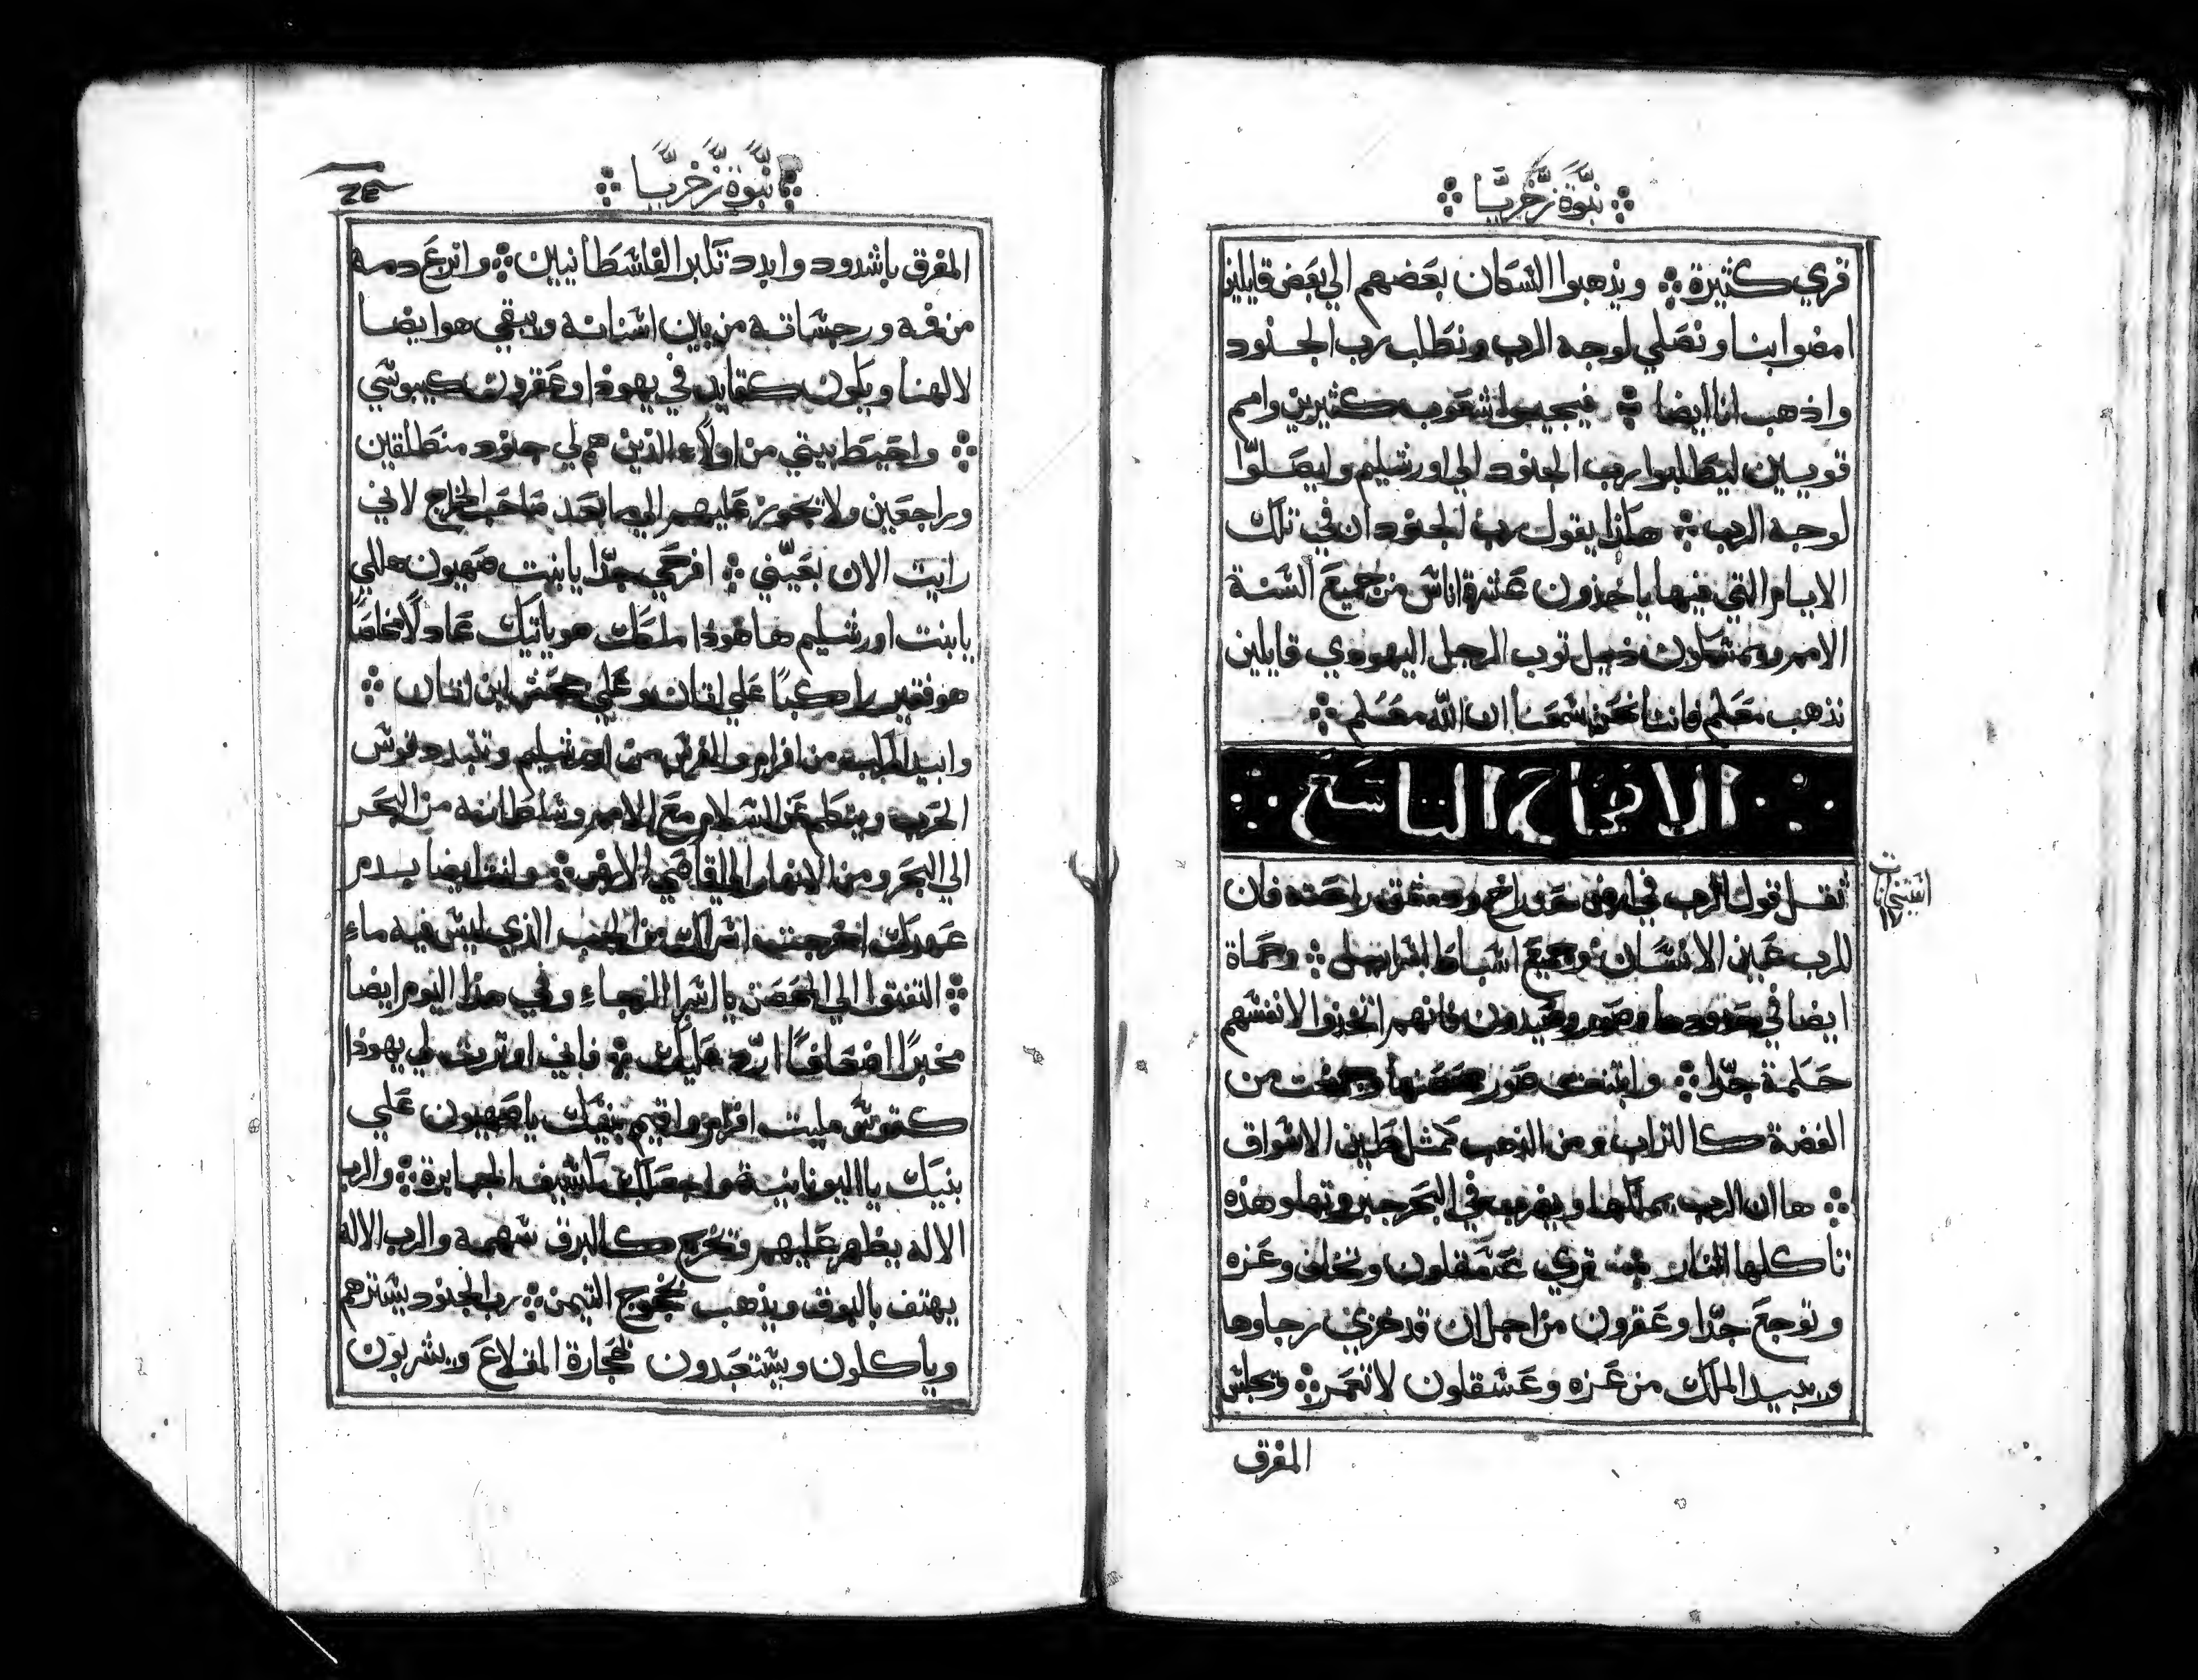 نبوة زخريا
قري كثيرة ويذهبوا السكان بعضهم الي بعض قايلين
امضوا بنا ونصلي لوجه الرب ونطلب رب الجنود
واذهب انا ايضا فيجيوا شعوب كثيرين وامم
قويين ليطلبوا رب الجنود الي اورشليم وايصلوا
لوجه الرب هكذا يقول رب الجنود ان في تلك
الايام التي فيها ياخذون عشرة اناس من جميع السنة
الامم ويمسكون ذيل توب الرجل اليهودي قايلين
نذهب معكم فاننا نحن سمعنا ان الله معكم
الافتتاح التاسع
ثقل قول الرب في ارض حدراخ ودمشق راحته فان
للرب عين الانسان وجميع اسباط اسراييل وحماة
ايضا في حدودها وصور وصيدون فانهم اتخذوا لانفسهم
حكمة جدا وابتنت صور حصنها وجمعت من
الفضة كالتراب ومن الذهب كمثل طين الاسواق
ها ان الرب يملكها ويضرب في البحر وهذه
تاكلها النار تري عسقلون وتخاف وغزه
وتوجع جدا وعقرون من اجل ان قد خزي رجاوها
ويبيد الملك من غزه وعسقلون لا تعمر وتجلس
المفرق
نبوة زخريا
المفرق باشدود وابدد تكبر الفلسطانيين وانزع دمه
من فمه ورجساته من بين اسنانه ويبقي هو ايضا
لالهنا ويكون كقايد في يهوذا وعقرون كيبوسي
واحيط بيتي من اولاء الذين هم لي جنود منطلقين
وراجعين ولا يجوز عليهم الي ما بعد صاحب الخراج لاني
رايت الان بعيني افرحي جدا يا بنت صهيون هللي
يا بنت اورشليم ها هوذا ملكك هو ياتيك عادلا مخلصا
هو فقير راكبا علي اتان وعلي جحش ابن اتان
وابيد المركبه من افرام والفرس من اورشليم وتتبدد قوس
الحرب ويتكلم عن السلام مع الامم وسلطانه من البحر
الي البحر ومن الانهار الي اقاصي الارض وانت ايضا بدم
عهدك اخرجت اسراك من الجب الذي ليس فيه ماء
التفتوا الي الحصن يا اسرا الرجاء وفي هذا اليوم ايضا
مخبرا اضعافا ارد عليك فاني اوترت لي يهوذا
كقوس مليت افرام واقيم بنيك يا صهيون علي
بنيك يا اليونانية واجعلك كسيف الجبابرة والرب
الاله يظهر عليهم وتخرج كالبرق سهمه والرب الاله
يهتف بالبوق ويذهب التيمن رب الجنود يسترهم
وياكلون ويستعبدون حجارة المقلاع ويشربون